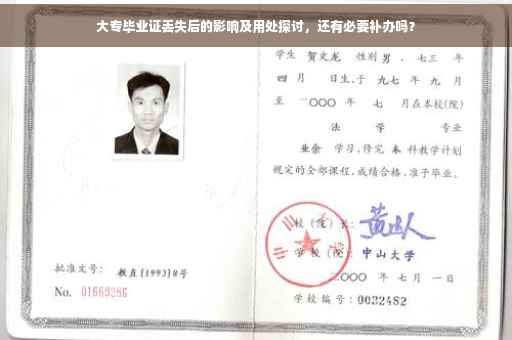 大专毕业证丢失后的影响及用处探讨，还有必要补办吗？
学生 贺文龙 性别 男 ，七三 年
四 月 日生，于 九七 年 九 月
至 二〇〇〇 年 七 月在本校(院)
法 学 专业
业余 学习，修完 本 科教学计划
规定的全部课程，成绩合格，准予毕业。
校（院）长：
学校（院）：中山大学
二〇〇〇 年 七 月 一 日
学校编号：0032482
批准文号：教直[1993]8号
No. 01663286